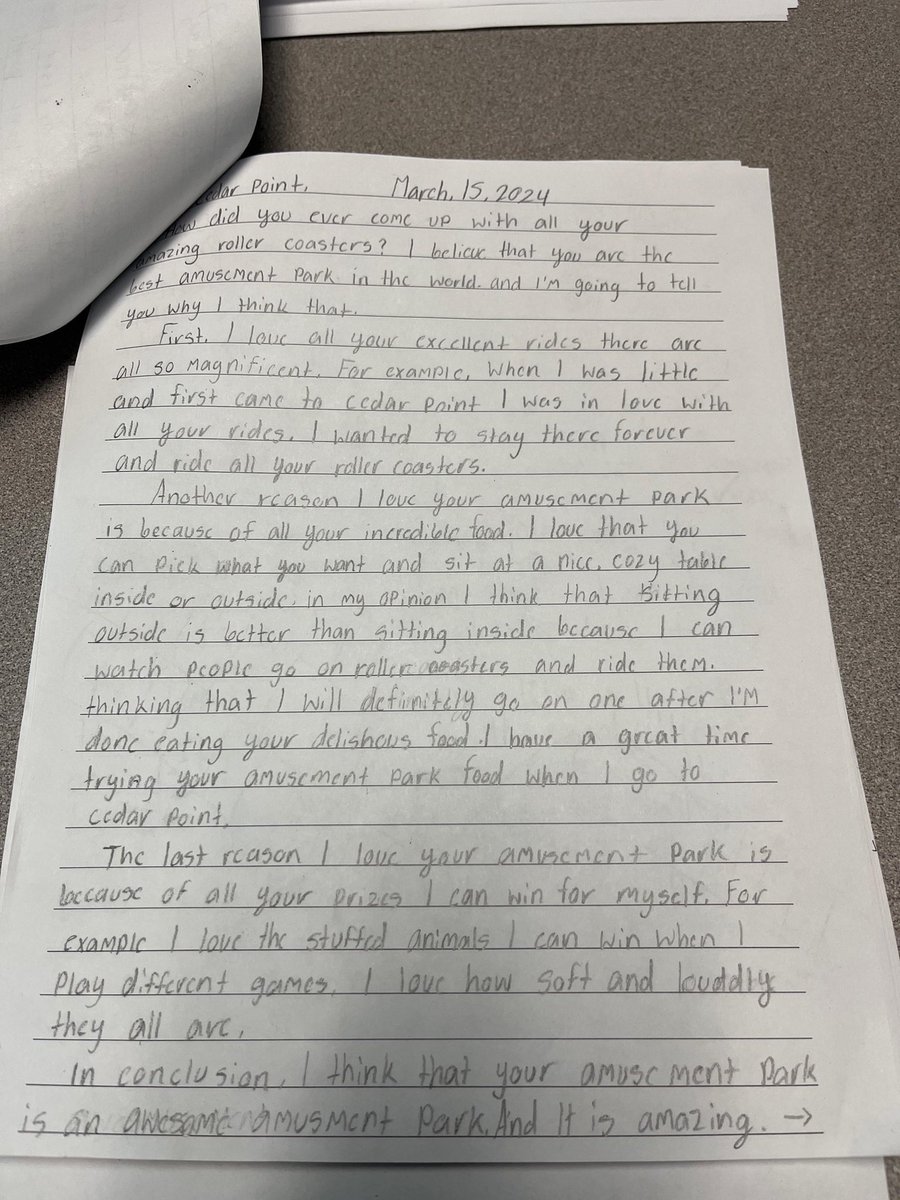 cedar point, March, 15, 2024
How did you ever come up with all your
amazing roller coasters? I believe that you are the
best amusement park in the world. and I'm going to tell
you why I think that.
First, I love all your excellent rides there are
all so magnificent. For example, when I was little
and first came to cedar point I was in love with
all your rides. I wanted to stay there forever
and ride all your roller coasters.
Another reason I love your amusement park
is because of all your incredible food. I love that you
can pick what you want and sit at a nice, cozy table
inside or outside. in my opinion I think that sitting
outside is better than sitting inside because I can
watch people go on roller coasters and ride them.
thinking that I will definitely go on one after I'm
done eating your delishous food. I have a great time
trying your amusement park food when I go to
cedar point.
The last reason I love your amusement park is
because of all your prizes I can win for myself. For
example I love the stuffed animals I can win when I
play different games. I love how soft and
they all are.
In conclusion, I think that your amusement park
is an awesome amusment park. And It is amazing. →